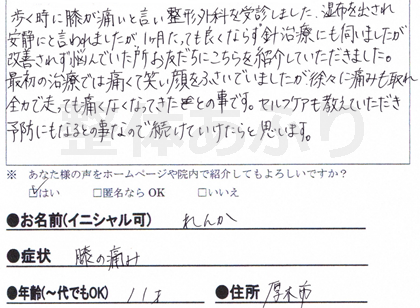 歩く時に膝が痛いと言い整形外科を受診しました。湿布を出され
安静にと言われましたが1ヶ月たっても良くならず針治療にも伺いましたが
改善されず悩んでいた所お友だちにこちらを紹介していただきました。
最初の治療では痛くて笑い顔をふさいでいましたが徐々に痛みも取れ
全力で走っても痛くなくなってきたとの事です。セルフケアも教えていただき
予防にもなるとの事なので続けていけたらと思います。
整体あかり
※ あなた様の声をホームページや院内で紹介してもよろしいですか?
☑はい □匿名なら OK □いいえ
●お名前(イニシャル可) れんか
●症状 膝の痛み
●年齢(~代でもOK) 11才 ●住所 厚木市